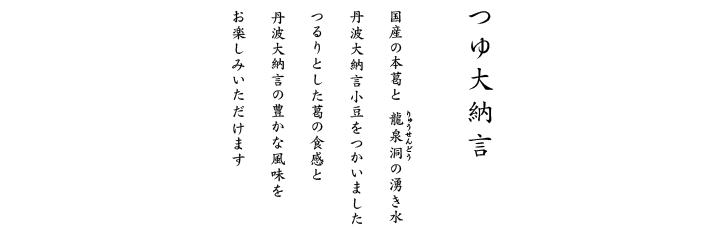 つゆ大納言
国産の本葛と 龍泉洞の湧き水
りゅうせんどう
丹波大納言小豆をつかいました
つるりとした葛の食感と
丹波大納言の豊かな風味を
お楽しみいただけます